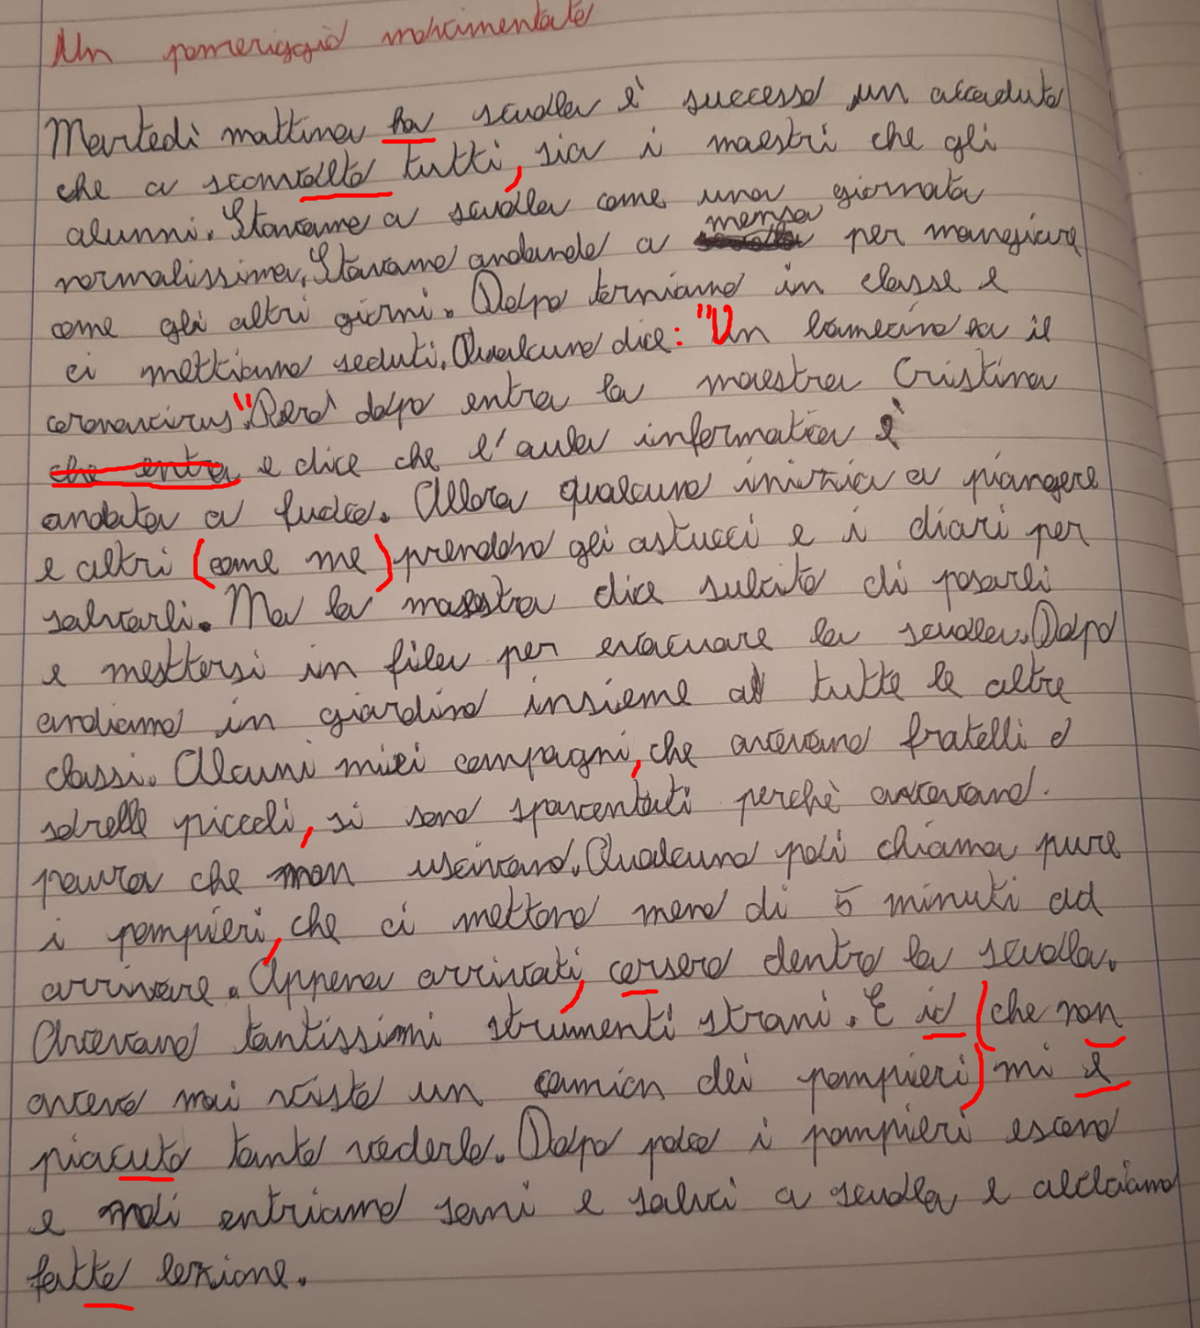 Un pomeriggio movimentato
Martedì mattina ha scuola è successo un accaduto
che a sconvolto tutti, sia i maestri che gli
alunni. Stavamo a scuola come una giornata
normalissima, Stavamo andando a mensa per mangiare
come gli altri giorni. Dopo torniamo in classe e
ci mettiamo seduti. Qualcuno dice: "Un bambino ha il
coronavirus". Però dopo entra la maestra Cristina
che entra e dice che l'aula informatica è
andata a fuoco. Allora qualcuno inizia a piangere
e altri (come me) prendono gli astucci e i diari per
salvarli. Ma la maestra dice subito di posarli
e mettersi in fila per evacuare la scuola. Dopo
andiamo in giardino insieme a tutte le altre
classi. Alcuni miei compagni, che avevano fratelli o
sorelle piccoli, si sono spaventati perchè avevano
paura che non uscivano. Qualcuno poi chiama pure
i pompieri, che ci mettono meno di 5 minuti ad
arrivare. Appena arrivati, corsero dentro la scuola.
Avevano tantissimi strumenti strani. E io (che non
avevo mai visto un camion dei pompieri) mi è
piacuto tanto vederlo. Dopo poco i pompieri escono
e noi entriamo sani e salvi a scuola e abbiamo
fatto lezione.